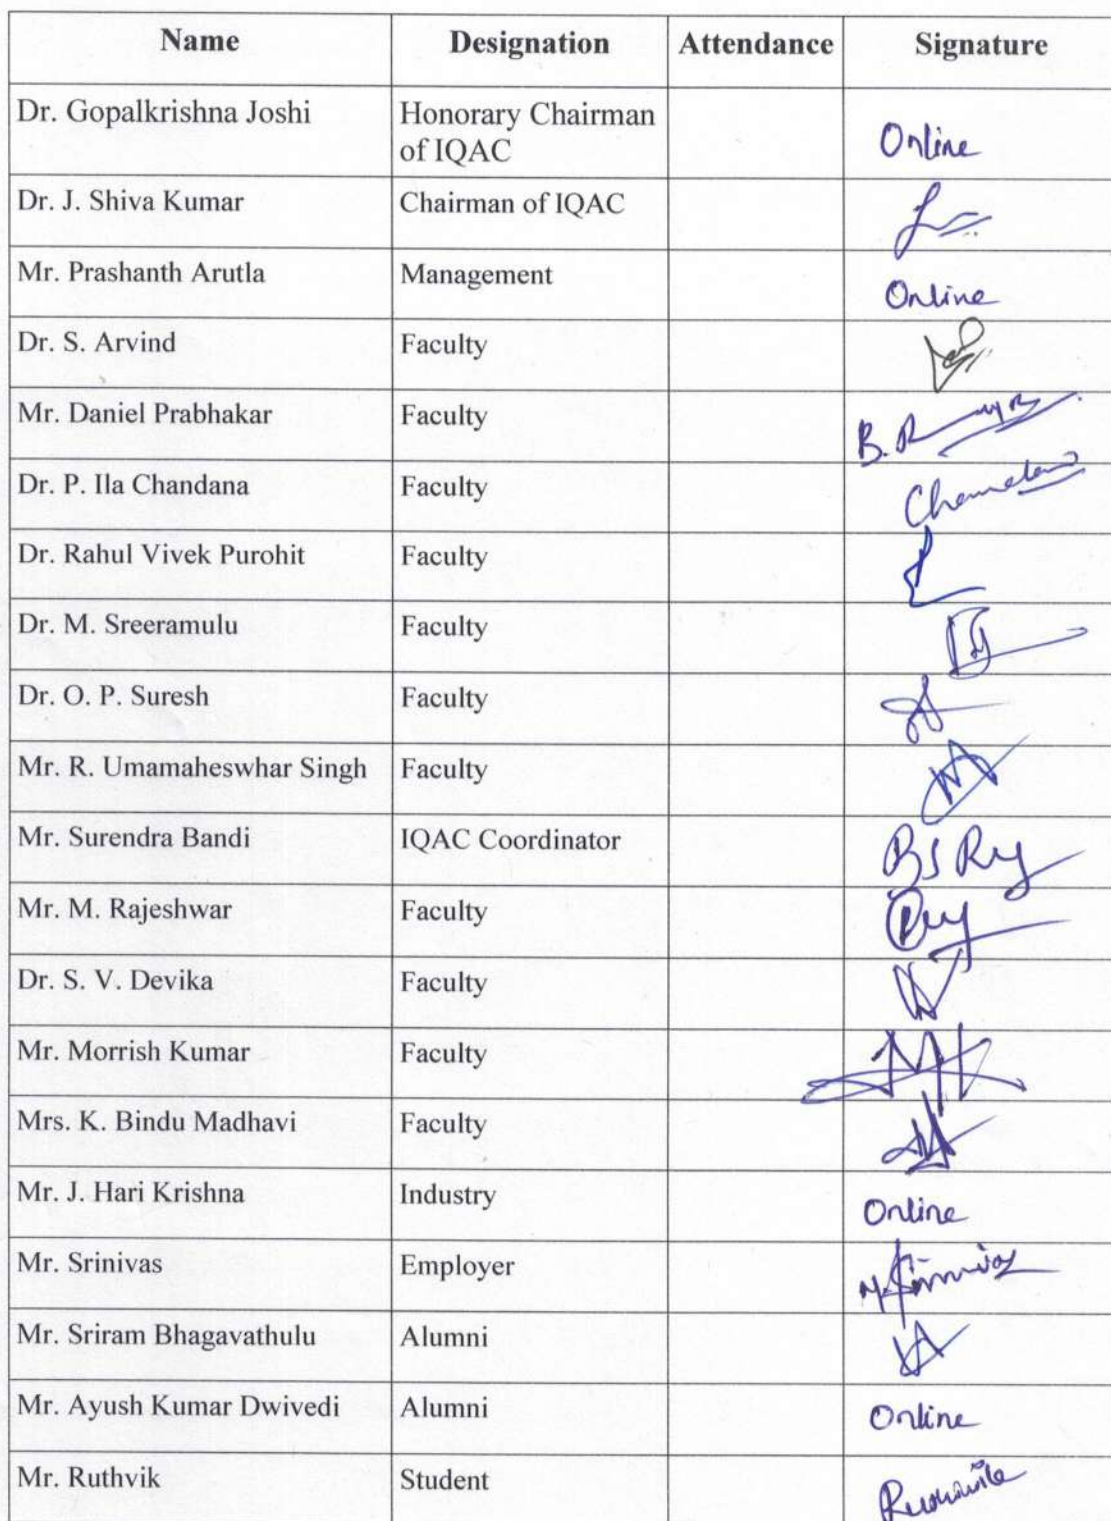 Name Designation Attendance Signature
Dr. Gopalkrishna Joshi Honorary Chairman
of IQAC Online
Dr. J. Shiva Kumar Chairman of IQAC
Mr. Prashanth Arutla Management Online
Dr. S. Arvind Faculty
Mr. Daniel Prabhakar Faculty B.
Dr. P. Ila Chandana Faculty
Dr. Rahul Vivek Purohit Faculty
Dr. M. Sreeramulu Faculty
Dr. O. P. Suresh Faculty
Mr. R. Umamaheswhar Singh Faculty
Mr. Surendra Bandi IQAC Coordinator
Mr. M. Rajeshwar Faculty
Dr. S. V. Devika Faculty
Mr. Morrish Kumar Faculty
Mrs. K. Bindu Madhavi Faculty
Mr. J. Hari Krishna Industry Online
Mr. Srinivas Employer
Mr. Sriram Bhagavathulu Alumni
Mr. Ayush Kumar Dwivedi Alumni Online
Mr. Ruthvik Student